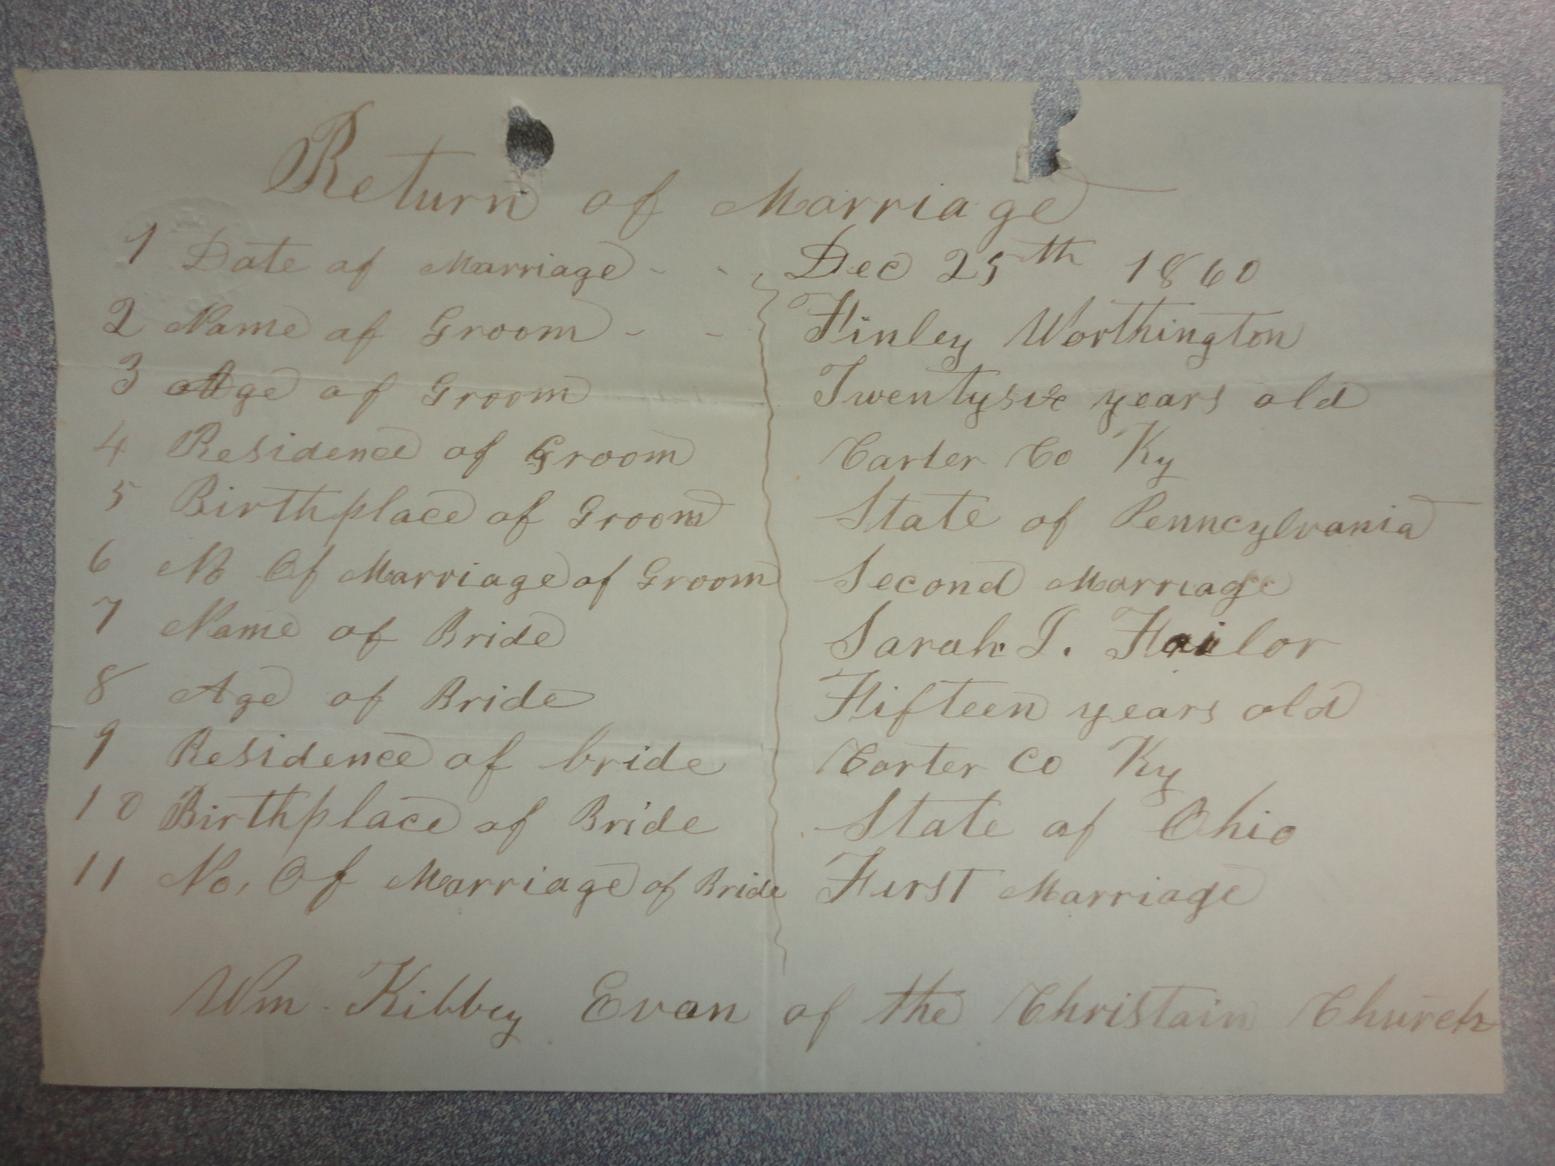 Return of Marriage
1 Date of Marriage - - Dec 25th 1860
2 Name of Groom - - Finley Worthington
3 Age of Groom Twentysix years old
4 Residence of Groom Carter Co Ky
5 Birthplace of Groom State of Penncylvania
6 No Of Marriage of Groom Second Marriage
7 Name of Bride Sarah J. Failor
8 Age of Bride Fifteen years old
9 Residence of bride Carter Co Ky
10 Birthplace of Bride State of Ohio
11 No, Of Marriage of Bride First Marriage
Wm. Kibbey Evan of the Christain Church